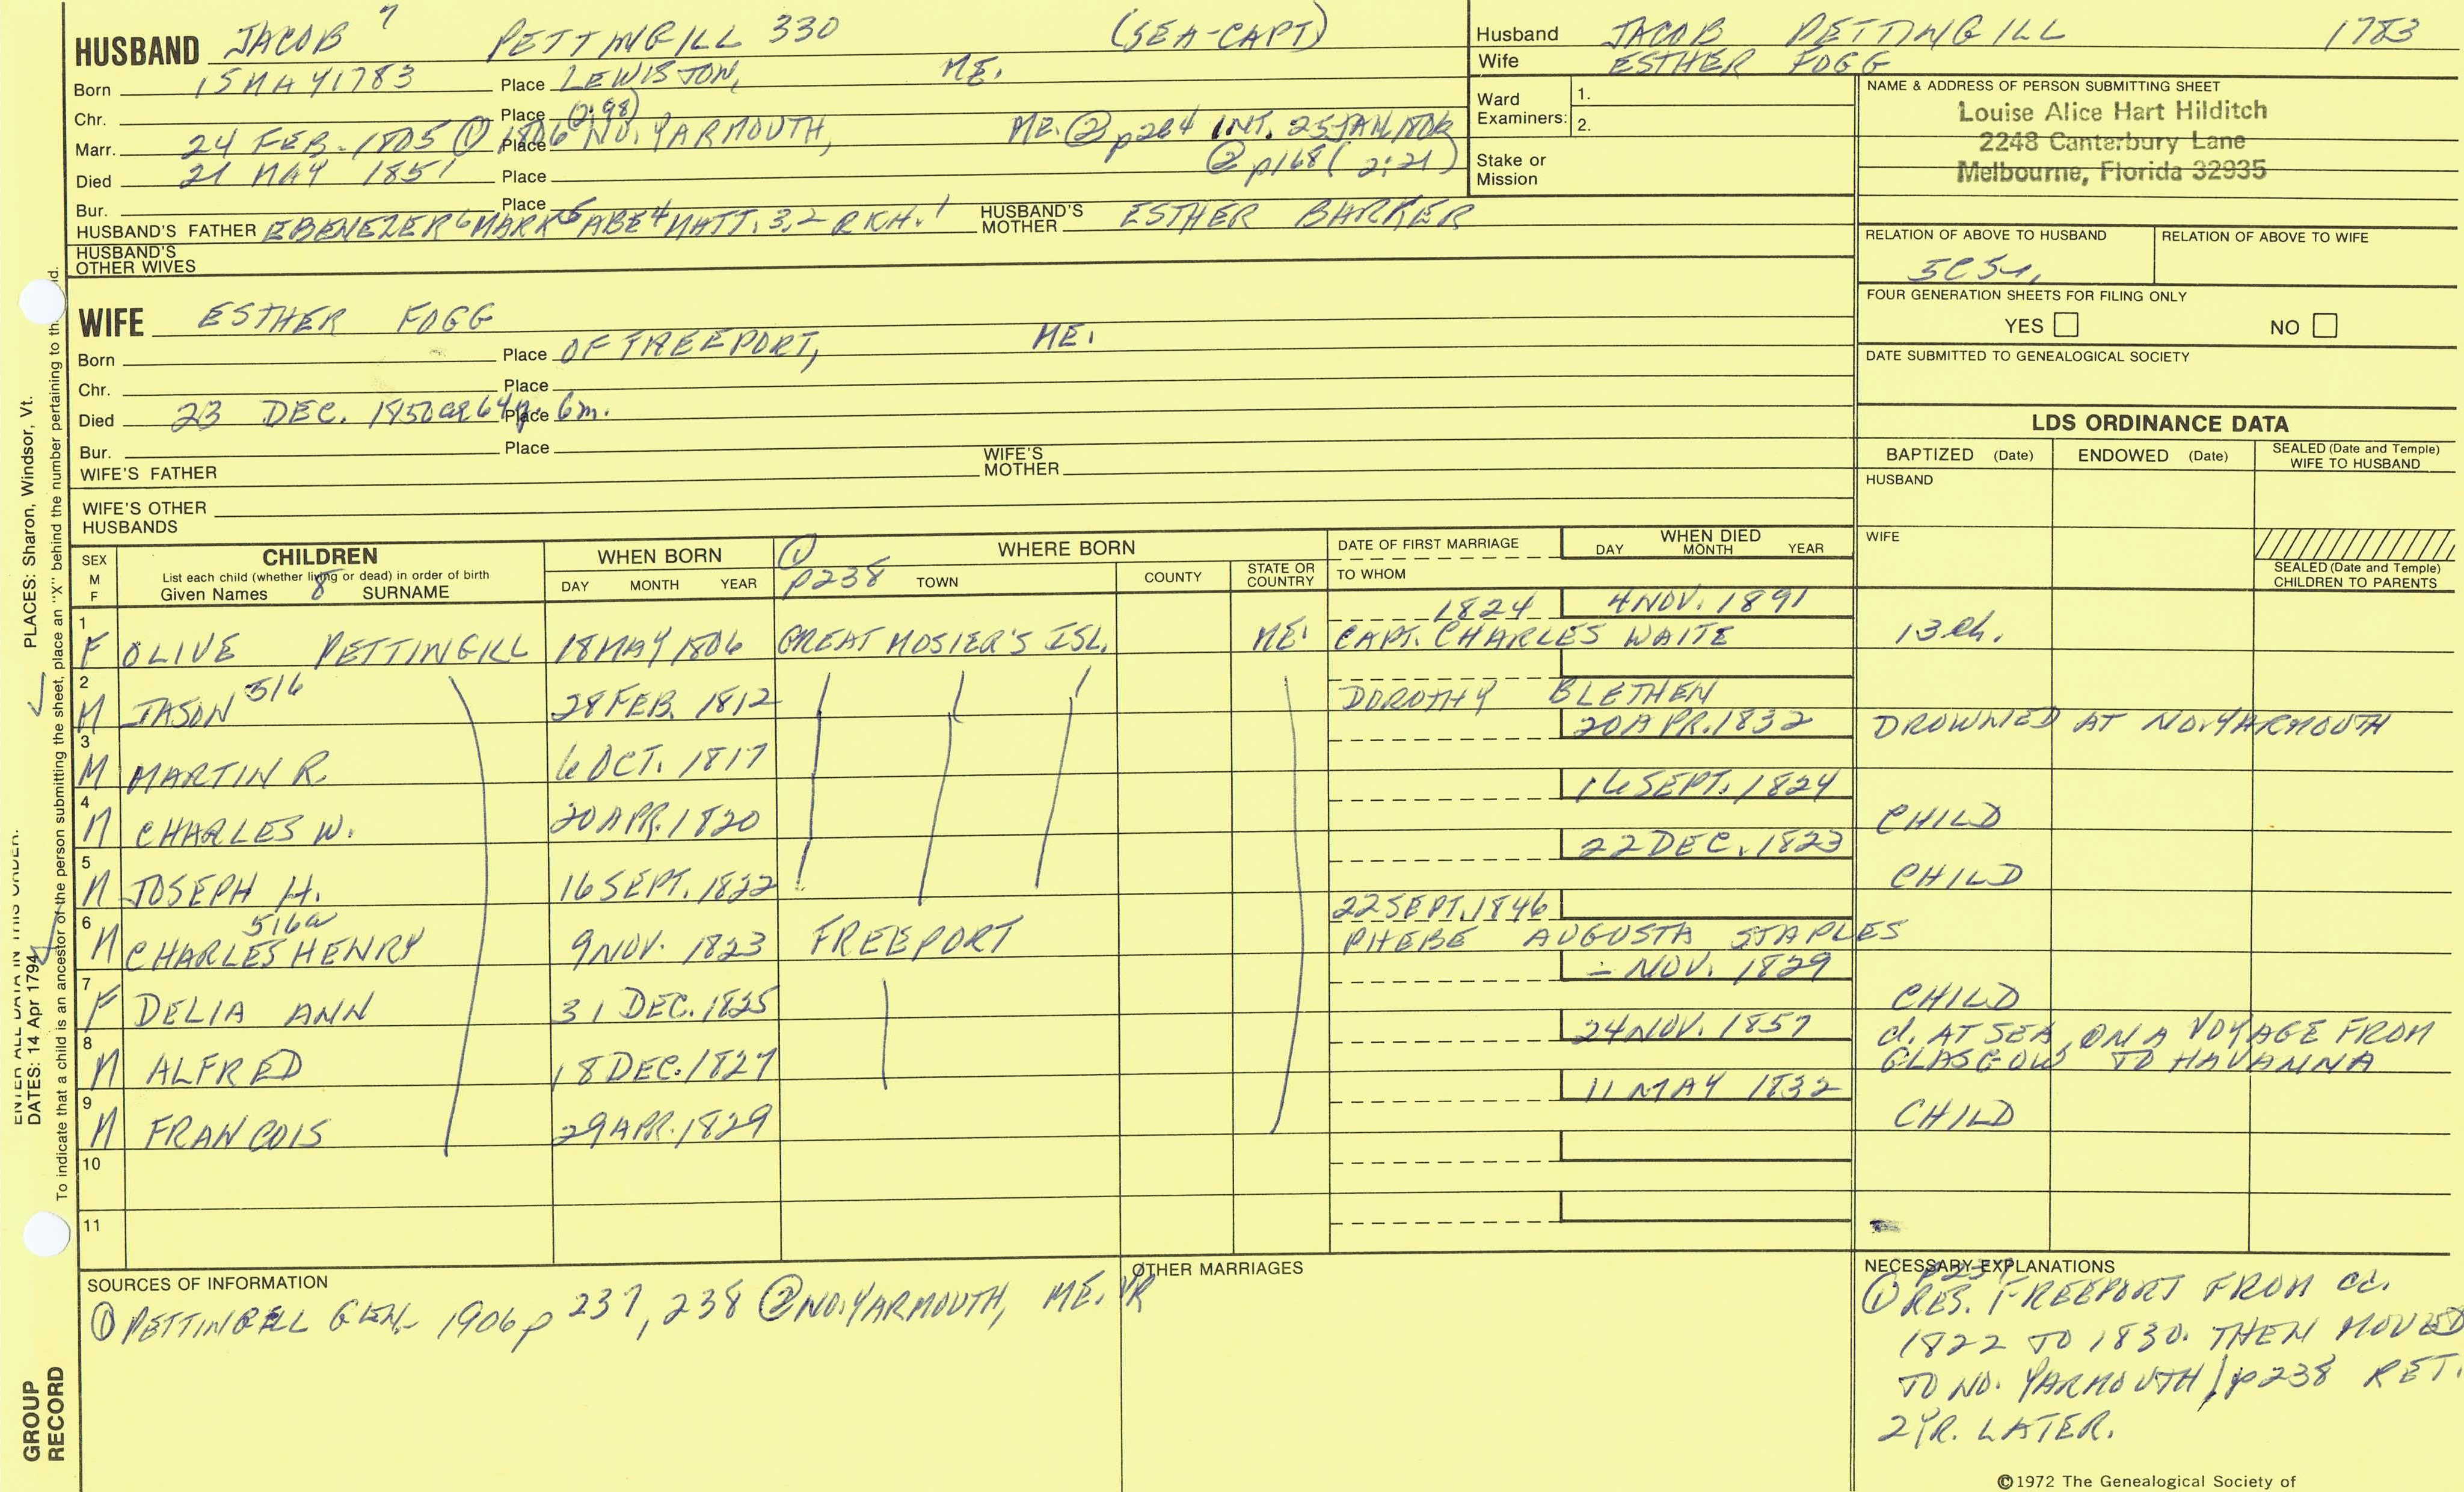 HUSBAND JACOB 7 PETTINGILL 330 (SEA-CAPT)
Born 15 MAY 1783 Place LEWISTON, ME.
Chr. Place (2:98)
Marr. 24 FEB. 1805 ① 1806 Place NO. YARMOUTH, ME. ② p264 INT. 25 JAN 1806
Died 21 MAY 1851 Place ② p168 (2:21)
Bur. Place
HUSBAND'S FATHER EBENEZER 6 MARK 5 ABE 4 MATT. 3,2 RICH. 1 HUSBAND'S MOTHER ESTHER BARKER
HUSBAND'S OTHER WIVES
WIFE ESTHER FOGG
Born Place OF FREEPORT, ME.
Chr. Place
Died 23 DEC. 1850 ae 64y. Place 6m.
Bur. Place
WIFE'S FATHER WIFE'S MOTHER
WIFE'S OTHER HUSBANDS
Husband JACOB PETTINGILL 1783
Wife ESTHER FOGG
Ward Examiners: 1.
2.
Stake or Mission
NAME & ADDRESS OF PERSON SUBMITTING SHEET
Louise Alice Hart Hilditch
2248 Canterbury Lane
Melbourne, Florida 32935
RELATION OF ABOVE TO HUSBAND RELATION OF ABOVE TO WIFE
5C5r.
FOUR GENERATION SHEETS FOR FILING ONLY
YES NO
DATE SUBMITTED TO GENEALOGICAL SOCIETY
LDS ORDINANCE DATA
BAPTIZED (Date) ENDOWED (Date) SEALED (Date and Temple) WIFE TO HUSBAND
HUSBAND
WIFE
SEALED (Date and Temple)
CHILDREN TO PARENTS
SEX M F CHILDREN WHEN BORN ① WHERE BORN DATE OF FIRST MARRIAGE WHEN DIED
List each child (whether living or dead) in order of birth
Given Names 8 SURNAME DAY MONTH YEAR p238 TOWN COUNTY STATE OR COUNTRY TO WHOM DAY MONTH YEAR
1 1824 4 NOV. 1891
F OLIVE PETTINGILL 18 MAY 1806 GREAT MOSIER'S ISL. ME. CAPT. CHARLES WAITE 13 ch.
2
M JASON 516 28 FEB. 1812 DOROTHY BLETHEN
3 20 APR. 1832 DROWNED AT NO. YARMOUTH
M MARTIN R. 6 OCT. 1817
4 16 SEPT. 1824
M CHARLES W. 20 APR. 1820 CHILD
5 22 DEC. 1823
M JOSEPH H. 16 SEPT. 1822 CHILD
6 516a 22 SEPT. 1846
M CHARLES HENRY 9 NOV. 1823 FREEPORT PHEBE AUGUSTA STAPLES
7 - NOV. 1829
F DELIA ANN 31 DEC. 1825 CHILD
8 24 NOV. 1857 d. AT SEA, ON A VOYAGE FROM
M ALFRED 18 DEC. 1827 GLASGOW TO HAVANNA
9 11 MAY 1832
M FRANCOIS 29 APR. 1829 CHILD
10
11
SOURCES OF INFORMATION
① PETTINGELL GEN. 1906 p 237, 238 ② NO. YARMOUTH, ME. VR
OTHER MARRIAGES
NECESSARY EXPLANATIONS
① p237 RES. FREEPORT FROM ca.
1822 TO 1830. THEN MOVED
TO NO. YARMOUTH / p238 RET.
2 YR. LATER.
©1972 The Genealogical Society of
PLACES: Sharon, Windsor, Vt.
ENTER ALL DATA IN THIS ORDER:
DATES: 14 Apr 1794
To indicate that a child is an ancestor of the person submitting the sheet, place an "X" behind the number pertaining to th
GROUP RECORD